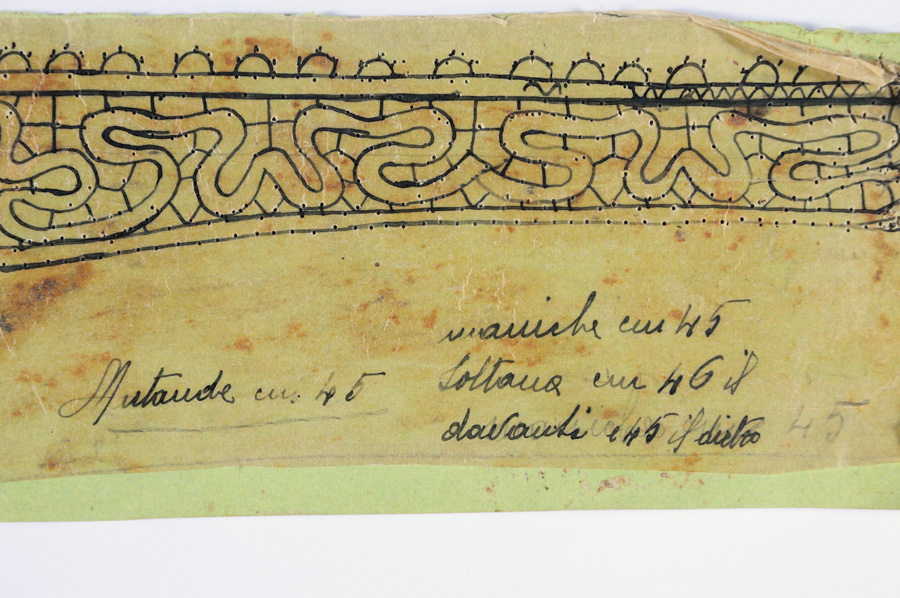 Mutande cm. 45
maniche cm 45
Sottana cm 46 il
davanti e 45 il dietro
45